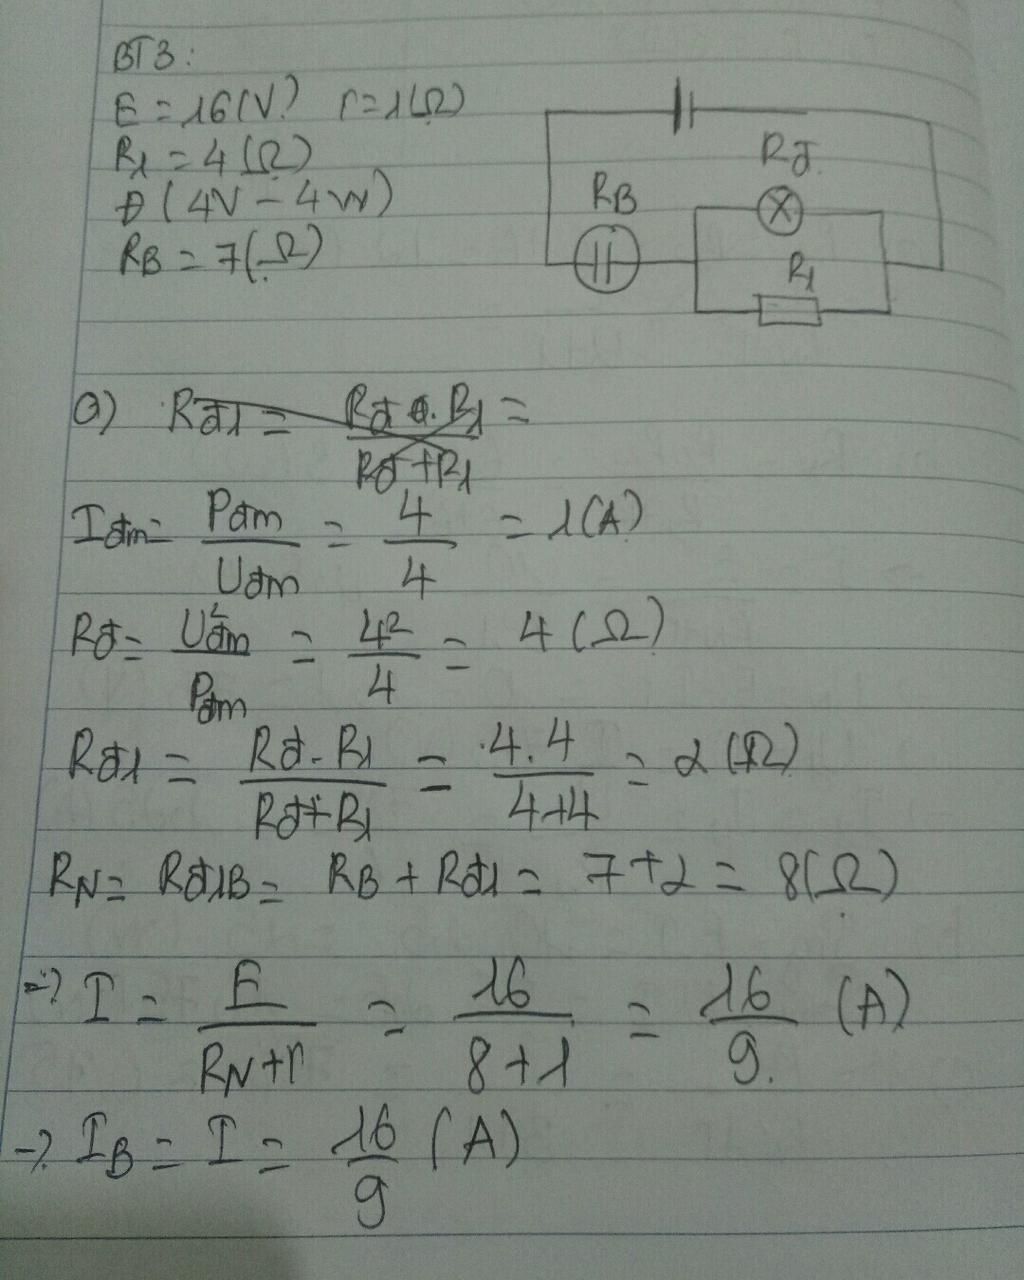 BT3:
E = 16(V) r = 1(Ω)
R1 = 4(Ω)
Đ(4V - 4W)
RB = 7(Ω)
Rđ
RB
R1
a) Rđ1 = Rđ . R1 / Rđ + R1 =
Iđm = Pđm / Uđm = 4 / 4 = 1(A)
Rđ = U²đm / Pđm = 4² / 4 = 4(Ω)
Rđ1 = Rđ . R1 / Rđ + R1 = 4.4 / 4+4 = 2(Ω)
RN = Rđ1B = RB + Rđ1 = 7+2 = 8(Ω)
=> I = E / RN + r = 16 / 8+1 = 16 / 9. (A)
-> IB = I = 16 / 9 (A)